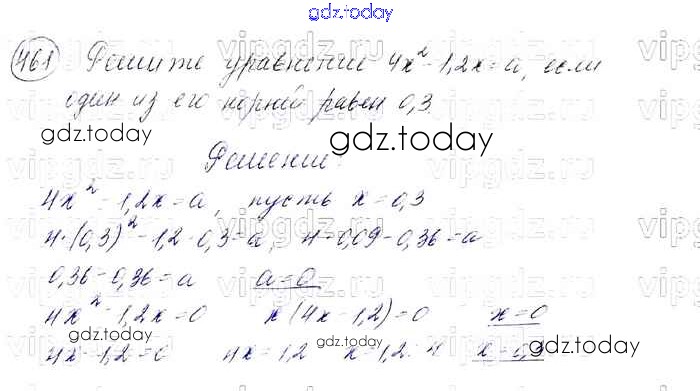 gdz.today
461 Решите уравнение 4x² - 1,2x = a, если
один из его корней равен 0,3.
gdz.today
gdz.today
Решение:
4x² - 1,2x = a, пусть x = 0,3
4·(0,3)² - 1,2·0,3 = a, 4·0,09 - 0,36 = a
0,36 - 0,36 = a a = 0
4x² - 1,2x = 0 x(4x - 1,2) = 0 x = 0
4x - 1,2 = 0 4x = 1,2 x = 1,2 : 4 x = 0,3
gdz.today
gdz.today
gdz.today